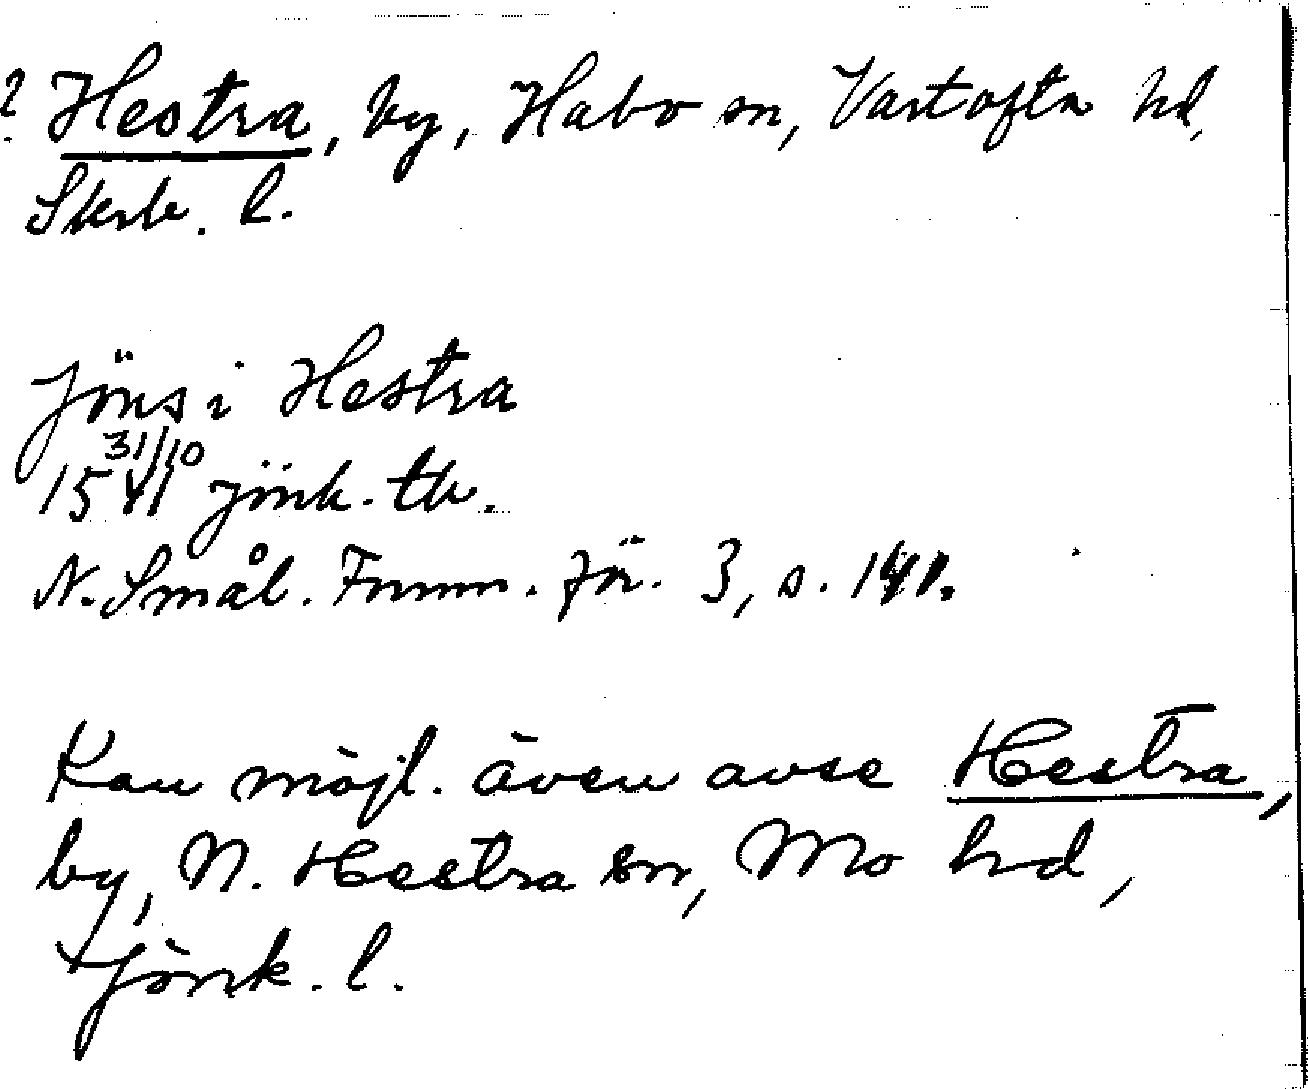 ? Hestra, by, Habo sn, Vartofta hd,
Skrb. l.
Jöns i Hestra
31/10
1541 Jönk. tb.
N. Smål. Fornm. för. 3, s. 141.
Kan möjl. även avse Hestra,
by, N. Hestra sn, Mo hd,
Jönk. l.